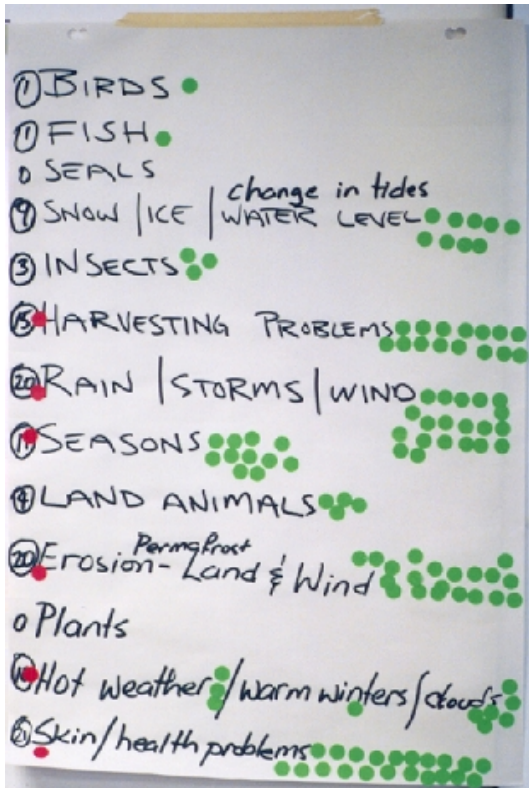 1 BIRDS
1 FISH
0 SEALS
change in tides
9 SNOW / ICE / WATER LEVEL
3 INSECTS
15 HARVESTING PROBLEMS
20 RAIN / STORMS / WIND
11 SEASONS
4 LAND ANIMALS
Permafrost
20 Erosion - Land & Wind
0 Plants
Hot weather / warm winters / clouds
21 Skin / health problems